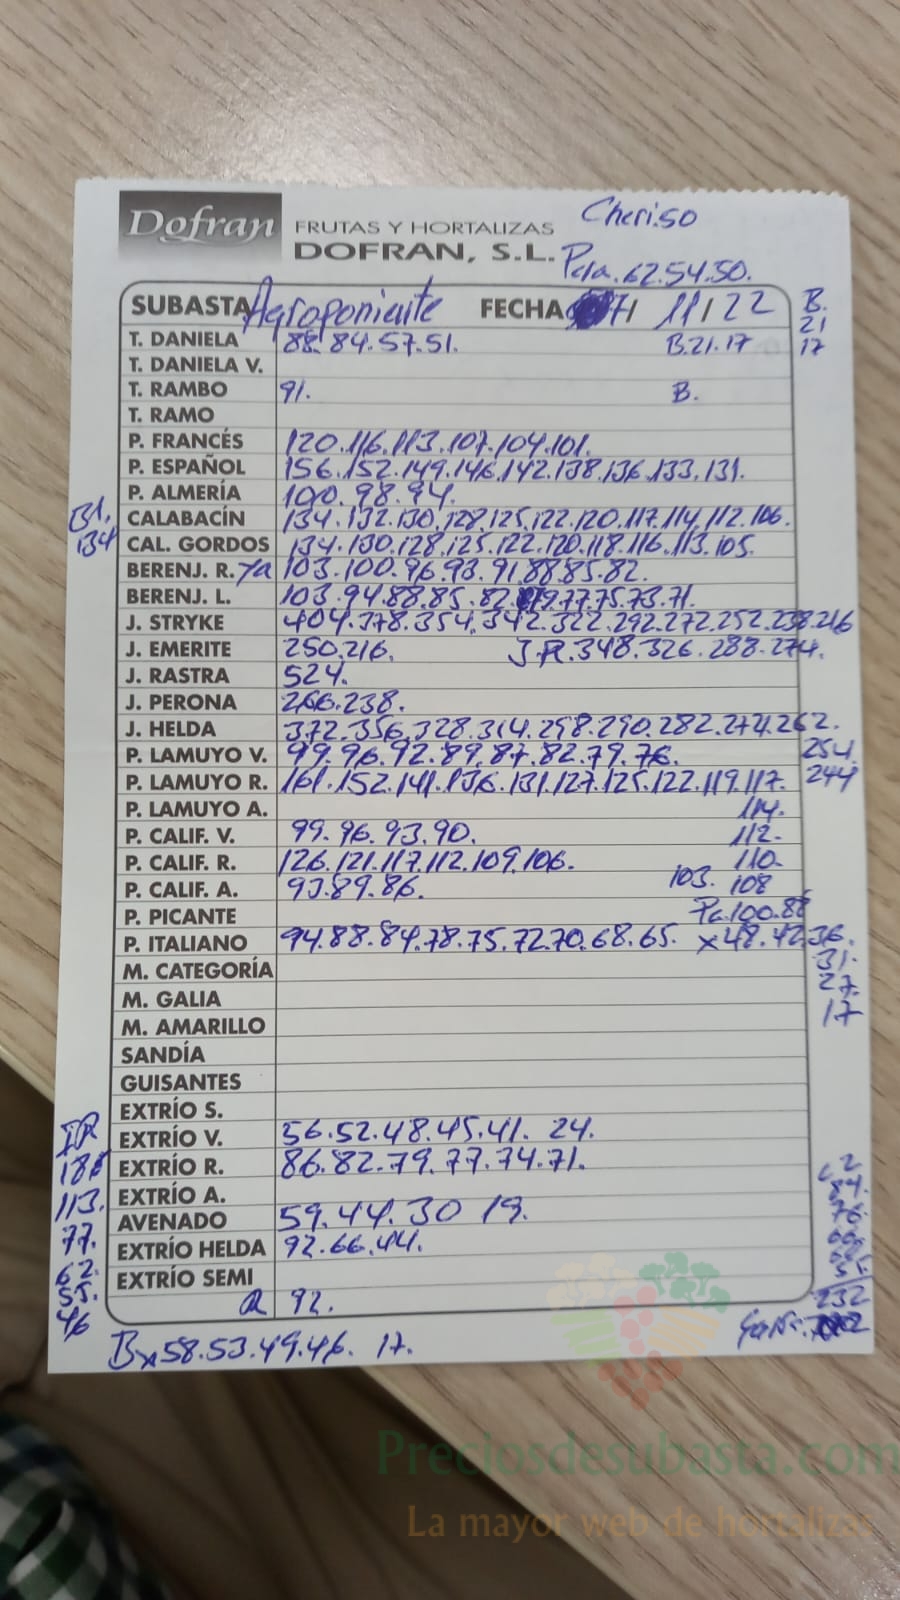 Dofran FRUTAS Y HORTALIZAS
DOFRAN, S.L.
Cheri.50
Pela.62.54.50.
SUBASTA Agroponiente FECHA 11/22
B.
21
17
T. DANIELA 88.84.57.51. B.21.17
T. DANIELA V.
T. RAMBO 91. B.
T. RAMO
P. FRANCÉS 120.116.113.107.104.101.
P. ESPAÑOL 156.152.149.146.142.138.136.133.131.
P. ALMERÍA 100.98.94.
B1. 134
CALABACÍN 134.132.130.128.125.122.120.117.114.112.106.
CAL. GORDOS 134.130.128.125.122.120.118.116.113.105.
BERENJ. R. Ya 103.100.96.93.91.88.85.82.
BERENJ. L. 103.94.88.85.82.79.77.75.73.71.
J. STRYKE 404.378.354.342.322.292.272.252.238.216
J. EMERITE 250.216. J.R.348.326.288.274.
J. RASTRA 524.
J. PERONA 266.238.
J. HELDA 372.356.328.314.298.290.282.274.262.
254.
244
P. LAMUYO V. 99.96.92.89.87.82.79.76.
P. LAMUYO R. 161.152.141.136.131.127.125.122.119.117.
P. LAMUYO A. 114.
P. CALIF. V. 99.96.93.90. 112.
P. CALIF. R. 126.121.117.112.109.106. 110.
P. CALIF. A. 93.89.86. 103. 108
P. PICANTE Pc.100.88
P. ITALIANO 94.88.84.78.75.72.70.68.65. x48.42.36.
31.
27.
17
M. CATEGORÍA
M. GALIA
M. AMARILLO
SANDÍA
GUISANTES
EXTRÍO S.
EXTRÍO V. 56.52.48.45.41. 24.
EXTRÍO R. 86.82.79.77.74.71.
EXTRÍO A.
AVENADO 59.44.30 19.
EXTRÍO HELDA 92.66.44.
EXTRÍO SEMI
R 92.
113.
77.
62.
55.
46
84.
76.
232
Bx58.53.49.46. 17.
Preciosdesubasta.com
La mayor web de hortalizas